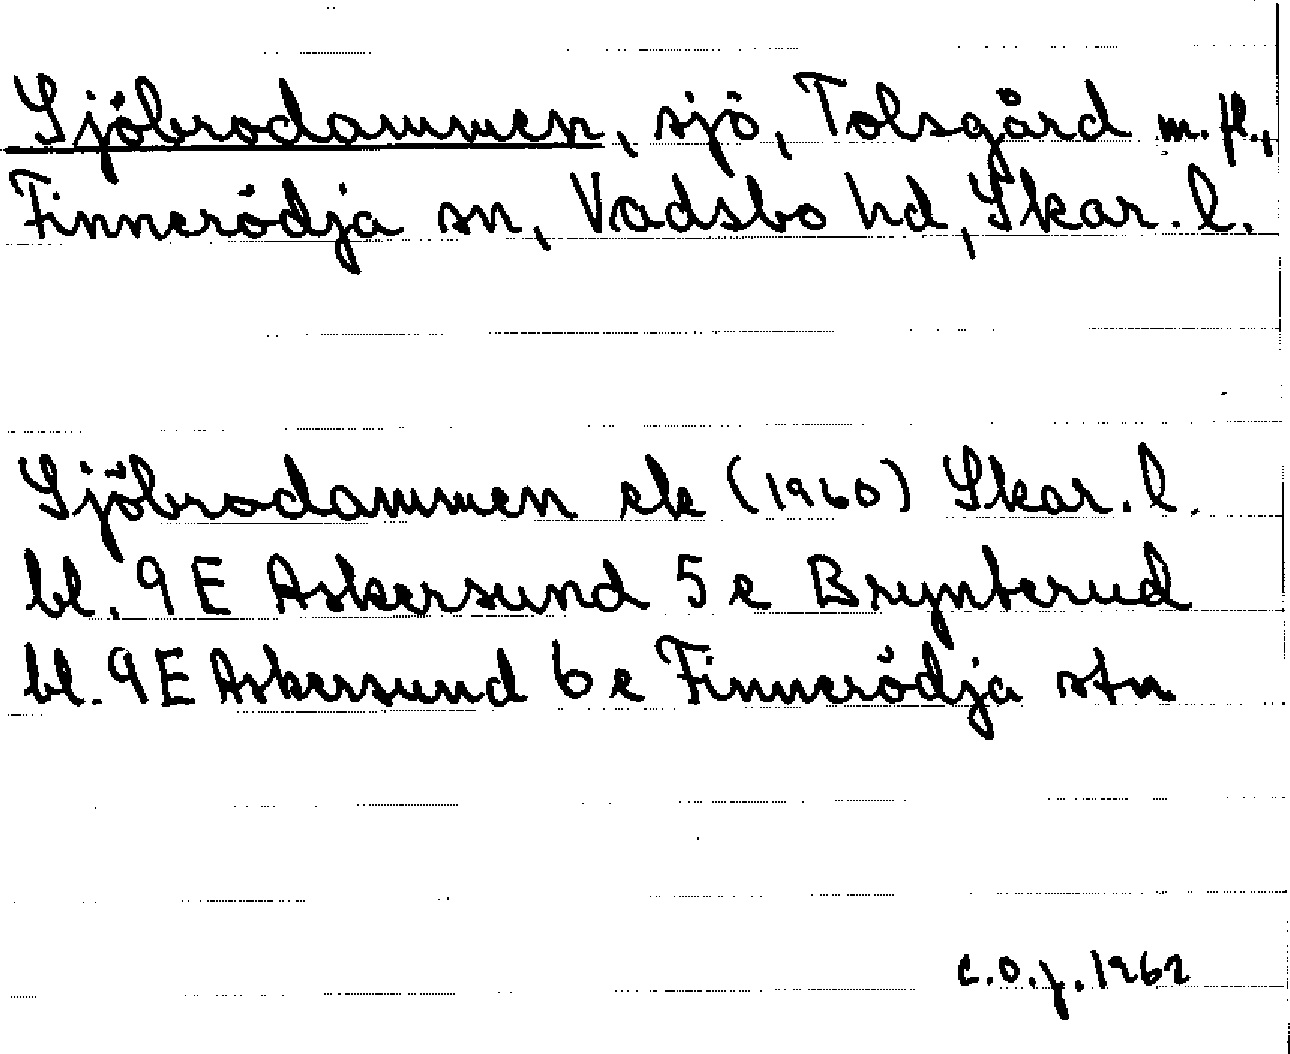 Sjöbrodammen, sjö, Tolsgård m. fl.,
Finnerödja sn, Vadsbo hd, Skar. l.
Sjöbrodammen ek (1960) Skar. l.
bl. 9 E Askersund 5 e Brynterud
bl. 9 E Askersund 6 e Finnerödja stn
C.O.J. 1962